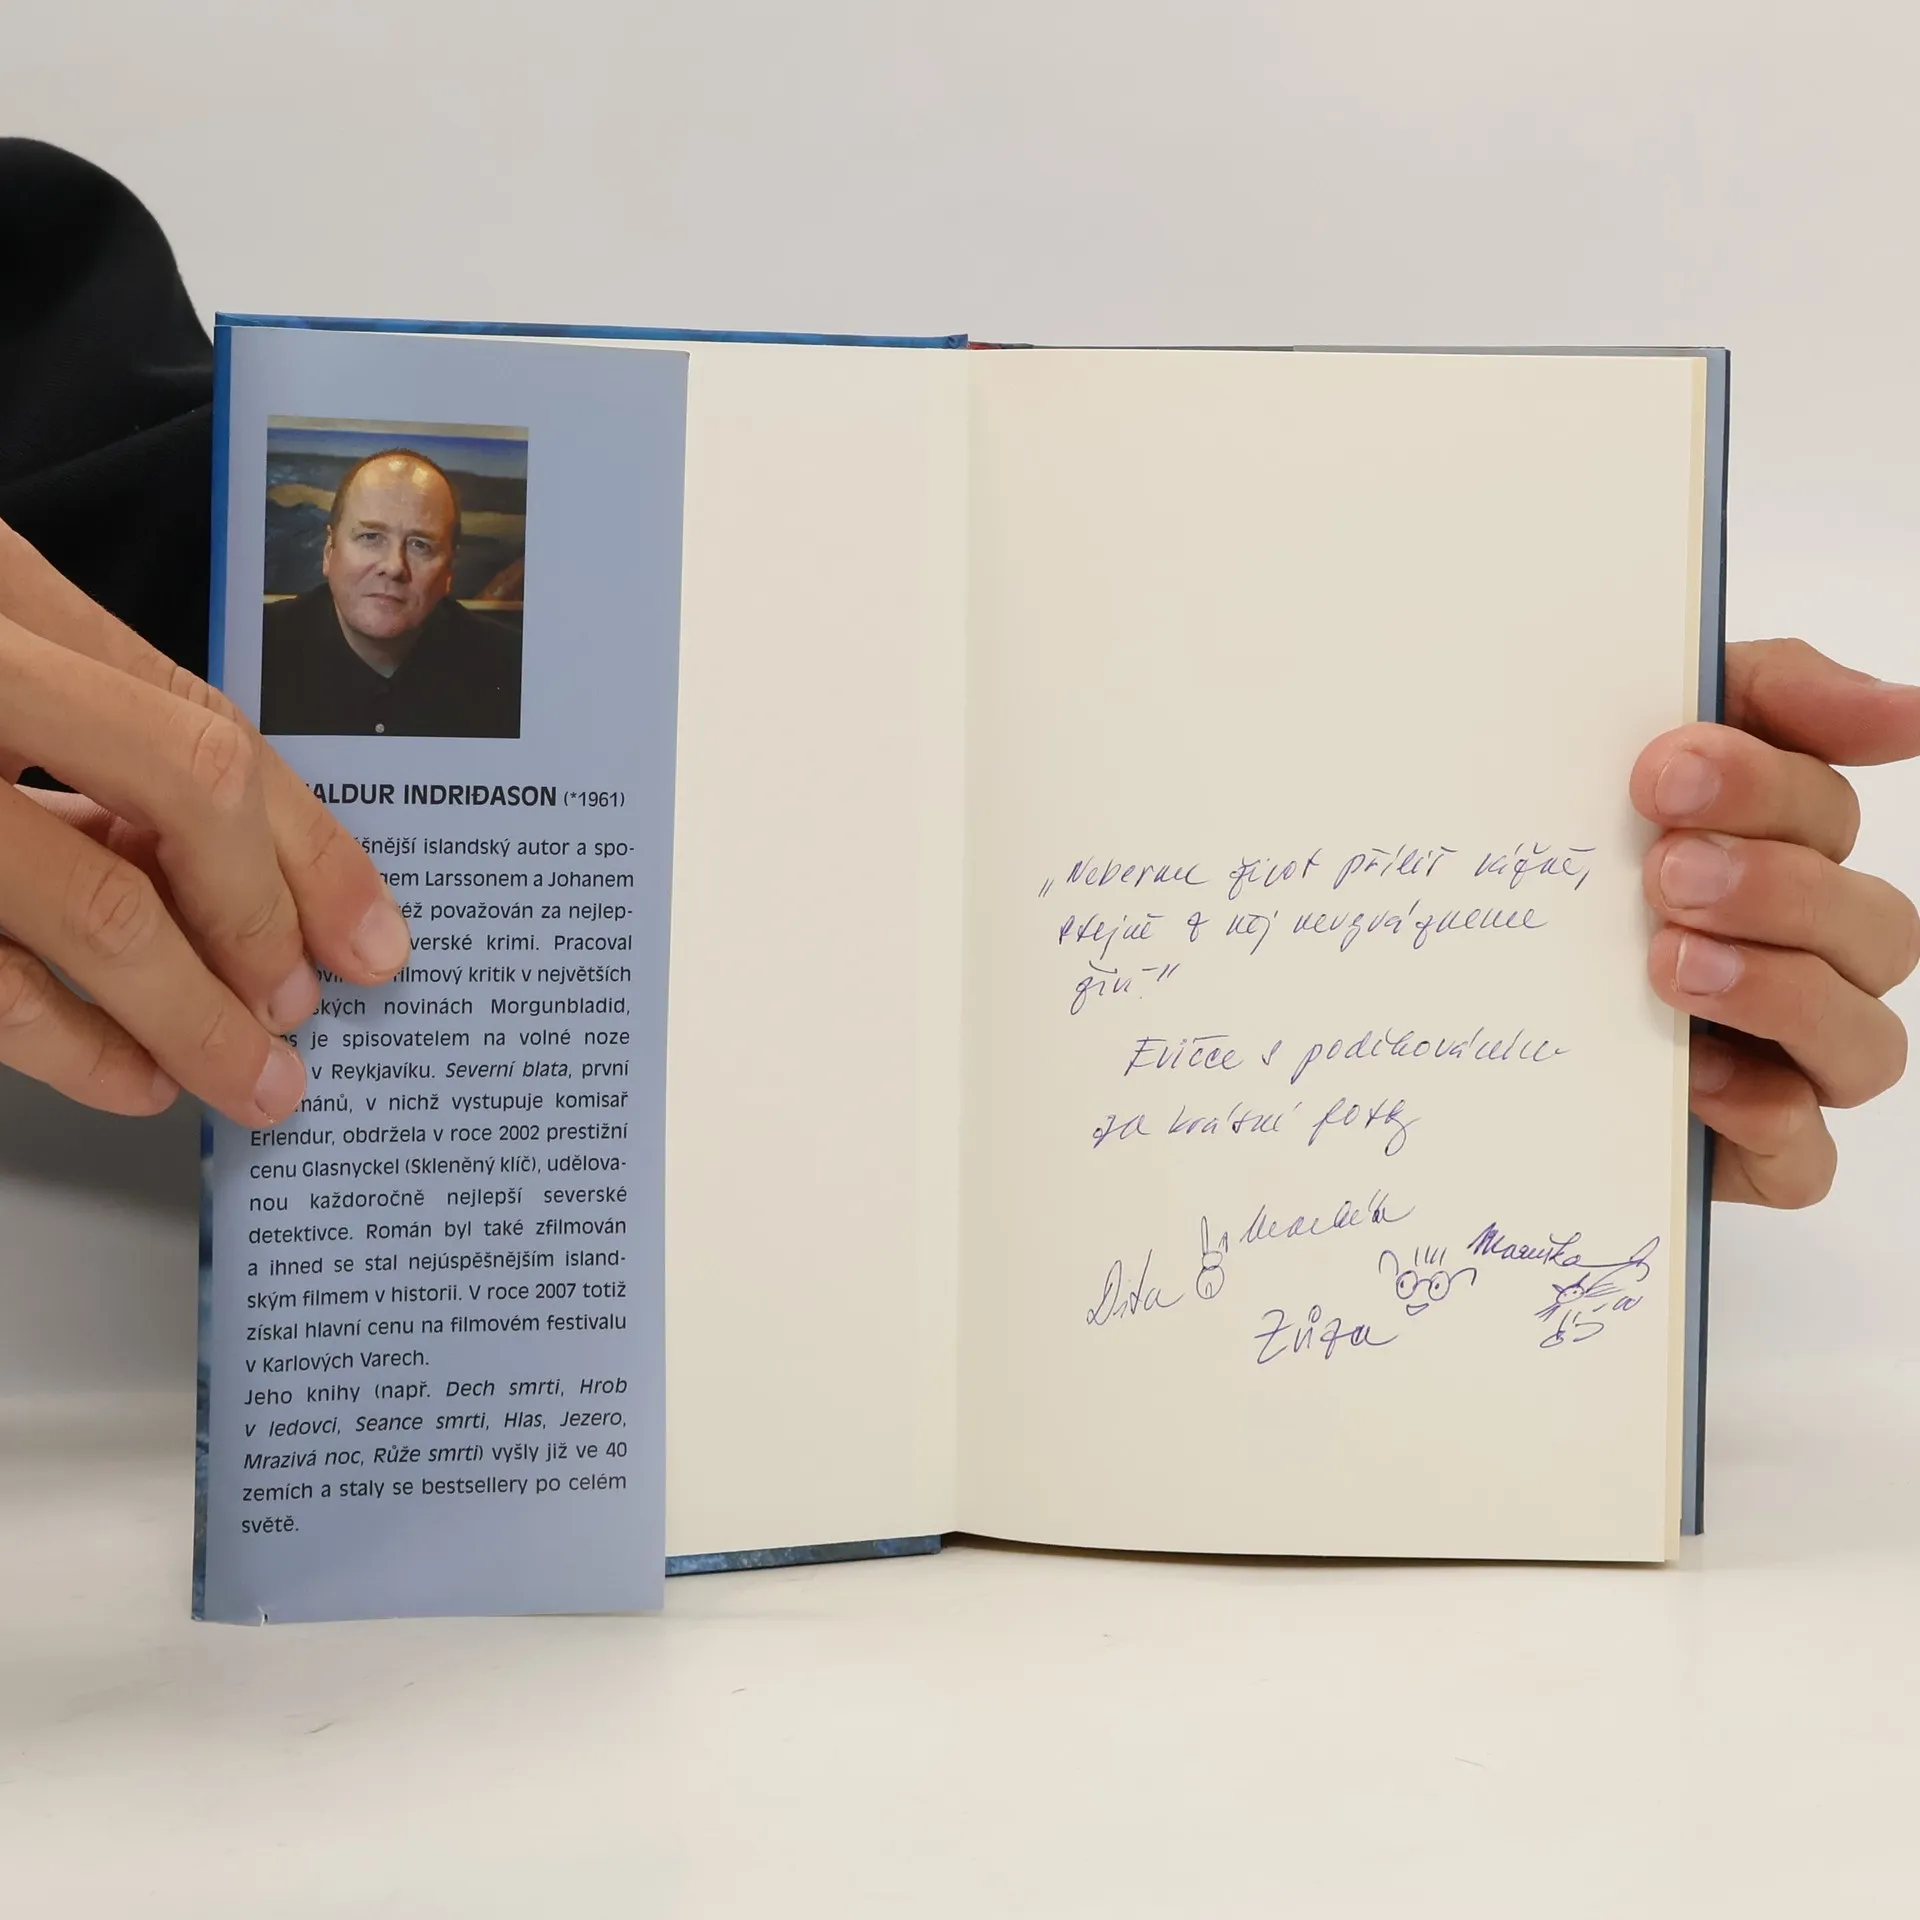 ALDUR INDRIÐASON (*1961)
šnější islandský autor a spo-
gem Larssonem a Johanem
éž považován za nejlep-
verské krimi. Pracoval
filmový kritik v největších
ských novinách Morgunbladid,
je spisovatelem na volné noze
v Reykjavíku. Severní blata, první
mánů, v nichž vystupuje komisař
Erlendur, obdržela v roce 2002 prestižní
cenu Glasnyckel (Skleněný klíč), udělova-
nou každoročně nejlepší severské
detektivce. Román byl také zfilmován
a ihned se stal nejúspěšnějším island-
ským filmem v historii. V roce 2007 totiž
získal hlavní cenu na filmovém festivalu
v Karlových Varech.
Jeho knihy (např. Dech smrti, Hrob
v ledovci, Seance smrti, Hlas, Jezero,
Mrazivá noc, Růže smrti) vyšly již ve 40
zemích a staly se bestsellery po celém
světě.
„Neberme život příliš vážně,
stejně z něj nevyvázneme
živí."
Evičce s poděkováním
za krásné fotky
Maruška
Dita
Zůza